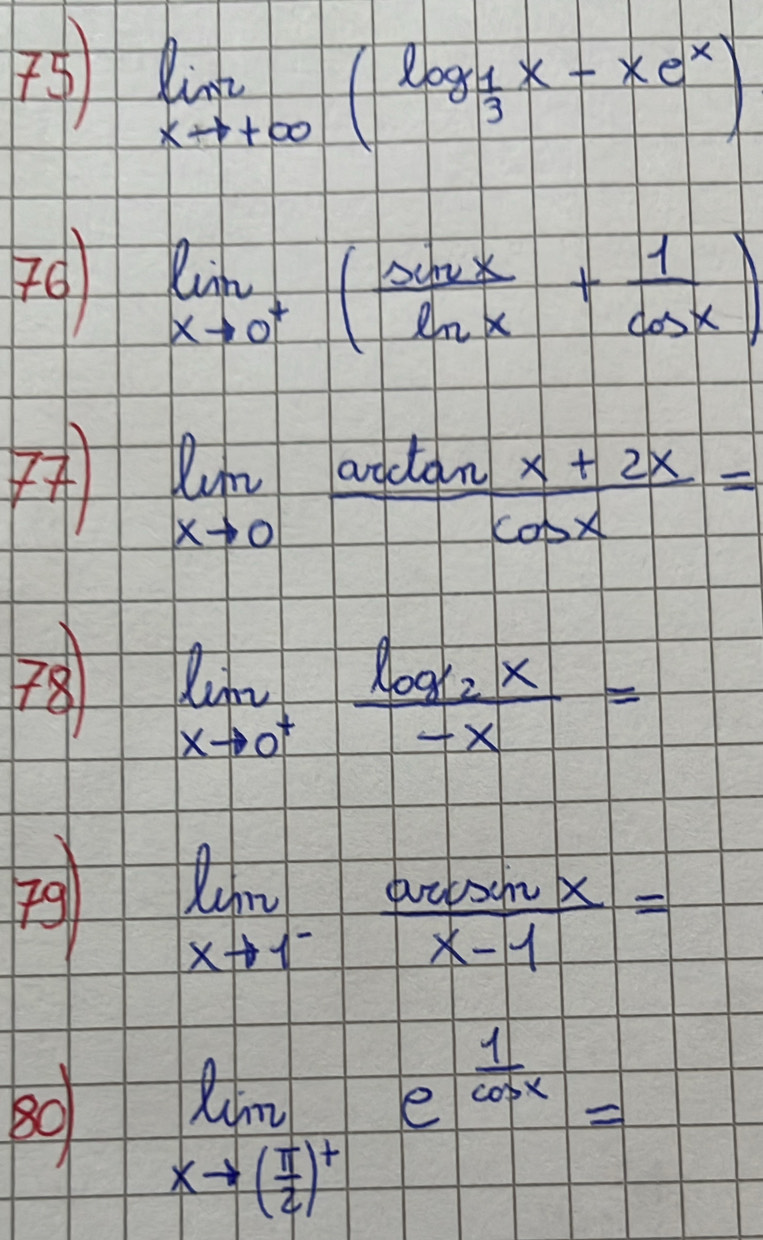 75) lim x→+∞ ( log_{1/3} x - x e^x )
76) lim x→0⁺ ( sin x / ln x + 1 / cos x )
77) lim x→0 (arctan x + 2x) / cos x =
78) lim x→0⁺ log₂ x / -x =
79) lim x→1⁻ arcsin x / (x-1) =
80) lim x→(π/2)⁺ e^{1/cos x} =